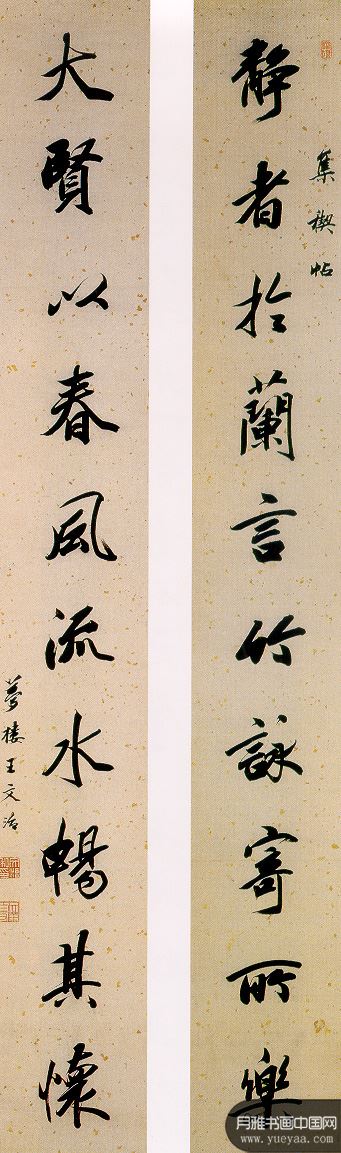 静者於蘭言竹詠寄所樂
集禊帖
大賢以春風流水暢其懷
夢樓王文治
月雅书画中国网
www.yueyaa.com